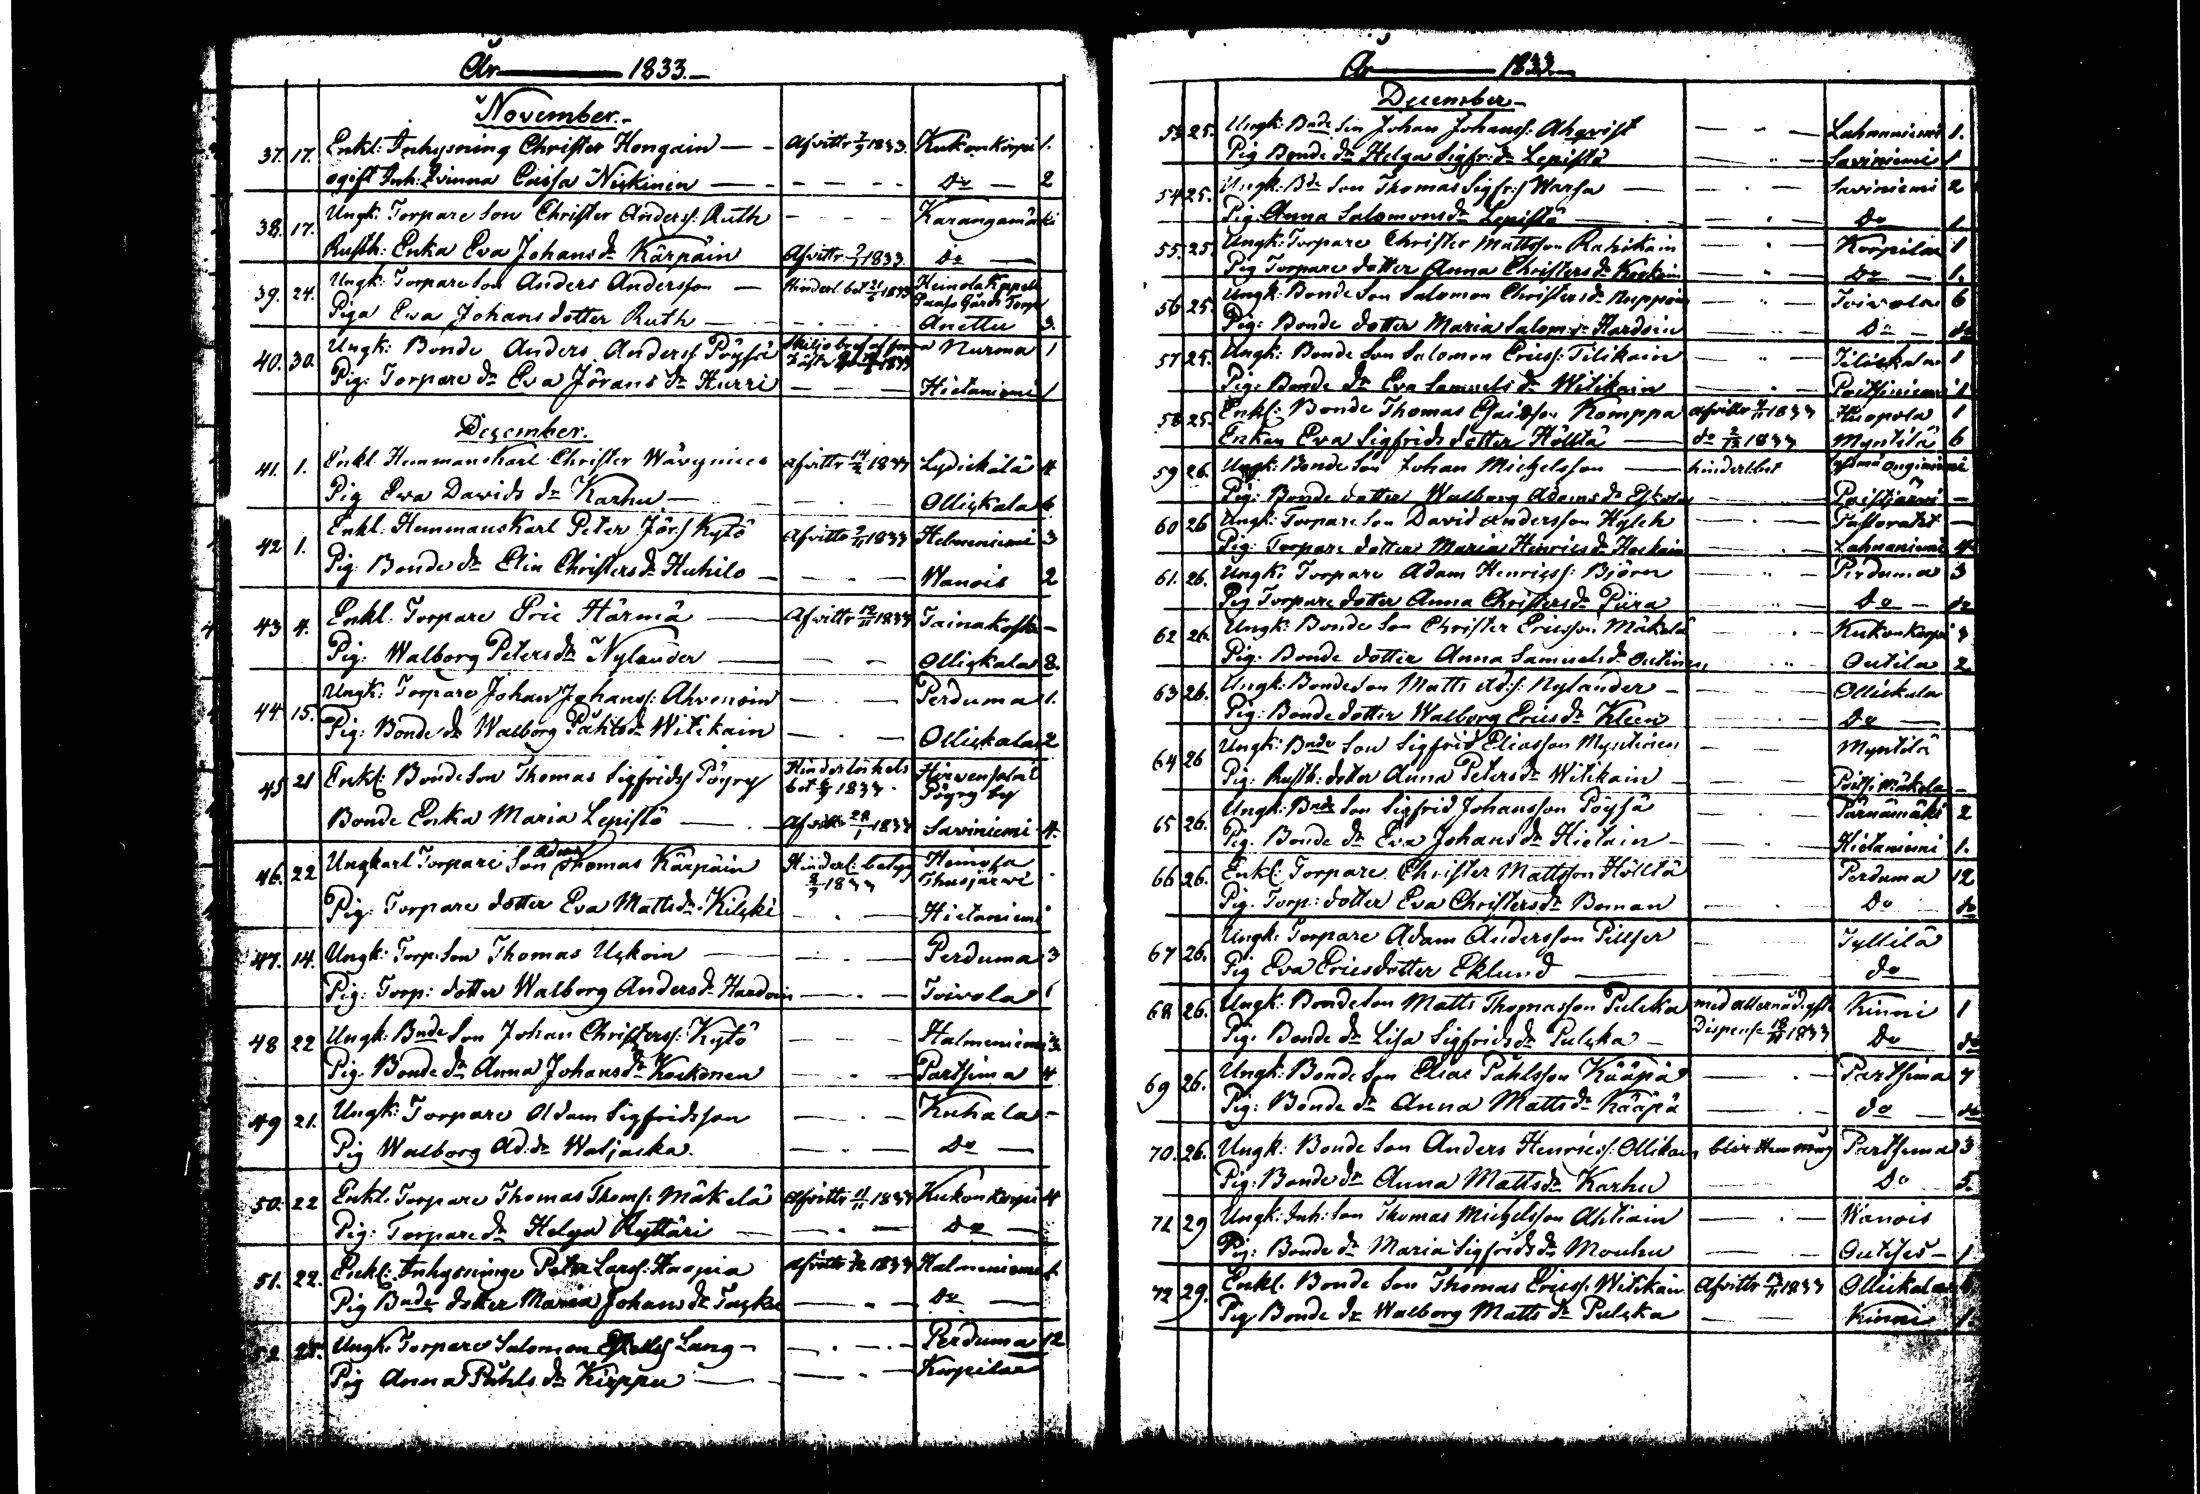 År 1833.
November.
37. 17. Enkl: Inhysning Christer Hongain Afvittr 7/9 1833. Kukonkorpi 1.
ogift Inh: Qvinna Caisa Niskinen Do 2
38. 17. Ungk: Torpare Son Christer Anderss: Ruth Karangamäki
Rusth: Enka Eva Johans dr Kärpäin Afvittr 1833 Do
39. 24. Ungk: Torpare Son Anders Andersson Hinderl. bet 1833 Heinola Kapell
Piga Eva Johans dotter Ruth Anettu 3.
40. 30. Ungk: Bonde Anders Anderss: Pöysä Skiljobref Nurma 1
Pig: Torpare dr Eva Jörans dr Hurri Hietaniemi 1
December.
41. 1. Enkl. Hemmanskarl Christer Wäyrynen Afvittr 1833 Lydickälä 4.
Pig Eva Davids dr Karhu Ollickala 6.
42 1. Enkl. Hemmanskarl Peter Jörs: Kytö Afvittr 1833 Helmeniemi 3
Pig: Bonde dr Elin Christers dr Huhilo Wanois 2
43 4. Enkl. Torpare Eric Härmä Afvittr 12/11 1833 Tainakoski
Pig: Walborg Peters dr Nylander Ollickala 8.
44. 15. Ungk: Torpare Johan Johanss: Ahvenain Perduma 1.
Pig: Bonde dr Walborg Påhls dr Witikain Ollickala 2
45 21 Enkl: Bonde Son Thomas Sigfridss Pöyry Hinderlöshets Hirvensalmi
bet 1833 Pöyry by
Bonde Enka Maria Lepistö Afvittr 1833 Saviniemi 4.
46. 22 Ungkarl Torpare Son Adam Thomas Kärpäin Hinderl: betyg Heinola
1833 Ihasjärvi
Pig: Torpare dotter Eva Matts dr Kilski Hietaniemi
47. 14. Ungk: Torp: Son Thomas Uskoin Perduma 3
Pig: Torp: dotter Walborg Anders dr Hardoin Toivola 6
48 22 Ungk: Bnde Son Johan Christerss: Kytö Halmeniemi 3.
Pig. Bonde dr Anna Johans dr Kockonen Partsima 4
49 21. Ungk: Torpare Adam Sigfridsson Kuhala
Pig Walborg Ad: dr Waljacka. Do
50. 22 Enkl. Torpare Thomas Thoms: Mäkelä Afvittr 11/11 1833 Kukonkorpi 4
Pig: Torpare dr Helga Ryttäri Do
51. 22. Enkl: Inhysninge Peter Larss: Haapia Afvittr 1833 Halmeniemi
Pig Bnde dotter Maria Johans dr Taske Do
52. 25. Ungk. Torpare Salomon Lang Perduma 12
Pig Anna Påhls dr Kirppu Korpilax
År 1833.
December
53 25. Ungk: Bnde Son Johan Johanss: Ahqvist Lahnaniemi 1.
Pig Bonde dr Helga Sigfr: dr Lepistö Saviniemi 1
54 25. Ungk: Bde Son Thomas Sigfr:s Warsa Saviniemi 2
Pig. Anna Salomons dr Lepistö Do 1.
55. 25. Ungk: Torpare Christer Mattsson Rahikain Korpilax 1
Pig Torpare dotter Anna Christers dr Kockoin Do 1.
56 25. Ungk: Bonde Son Salomon Christers dr Auppoin Toivola 6
Pig: Bonde dotter Maria Salom: dr Hardoin Do do
57 25. Ungk: Bonde Son Salomon Ericss: Tilikain Tilickala 1
Pig. Bonde dr Eva Samuels dr Witikain Poitsiniemi 1
58 25. Enkl: Bonde Thomas Esaiasson Komppa Afvittr 1833 Huopola 1
Enkan Eva Sigfrids dotter Hölttä do 1833 Myntilä 6
59 26. Ungk: Bonde Son Johan Michelsson hinderl:bet
Pig: Bonde dotter Walborg Adams dr Eskola Poistjärvi
60 26 Ungk: Torpare Son David Andersson Hylch Pastoratet
Pig: Torpare dotter Maria Henrics dr Hockain Lahnaniemi 4
61. 26. Ungk: Torpare Adam Henricss: Björn Perduma 3
Pig Torpare dotter Anna Christers dr Piira Do do
62 26. Ungk: Bonde Son Christer Ericsson Mäkelä Kukonkorpi 3
Pig: Bonde dotter Anna Samuels dr Outinen Outila 2
63 26. Ungk: Bonde Son Matts Ad:s: Nylander Ollickala
Pig: Bonde dotter Walborg Erics dr Kleen Do
64 26 Ungk: Bnde Son Sigfrid Eliasson Myntinen Myntilä
Pig: Rusth: dotter Anna Peters dr Witikain Poitsi Mäkelä
65 26. Ungk: Bnde Son Sigfrid Johansson Pöysä Pärnämäki 2
Pig. Bonde dr Eva Johans dr Hietain Hietaniemi 1.
66 26. Enkl: Torpare Christer Mattsson Hölttä Perduma 12
Pig. Torp: dotter Eva Christers dr Boman Do do
67 26. Ungk: Torpare Adam Andersson Pillser Tyllilä
Pig Eva Erics dotter Eklund do
68 26. Ungk: Bonde Son Matts Thomasson Pulska med allernådigste Kinni 1
Pig. Bonde dr Lisa Sigfrids dr Pulska Dispense 1833 Do do
69 26. Ungk: Bonde Son Elias Påhlsson Kääpä Partsima 7
Pig: Bonde dr Anna Matts dr Kääpä do do
70. 26. Ungk: Bonde Son Anders Henricss: Ollikain blir Hemmåg Partsima 3
Pig: Bonde dr Anna Matts dr Karhu Do 5.
71 29 Ungk: Inh: Son Thomas Michelsson Ahtiain Wanois
Pig: Bonde dr Maria Sigfrids dr Mouhu 1
72 29. Enkl. Bonde Son Thomas Ericss: Witikain Afvittr 1833 Ollickala
Pig Bonde dr Walborg Matts dr Pulska Kinni 1.